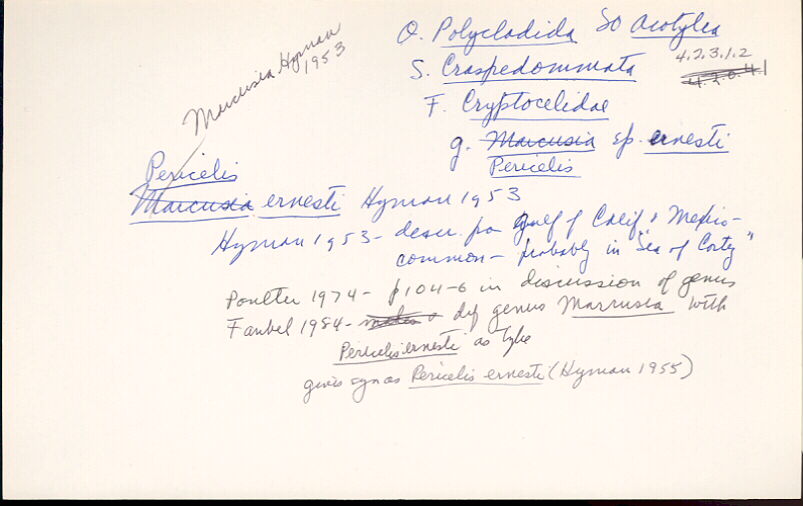 O. Polycladida SO Acotylea
Marcusia Hyman
1953
S. Craspedommata
4.2.3.1.2
F. Cryptocelidae
g. Marcusia sp. ernesti
Pericelis
Pericelis
Marcusia ernesti Hyman 1953
Hyman 1953 - descr. for gulf of Calif & Mexico -
common - probably in "Sea of Cortez"
Poulter 1974 - p104-6 in discussion of genus
Faubel 1984 - def genus Marcusia with
Pericelis ernesti as type
gives syn as Pericelis ernesti (Hyman 1955)